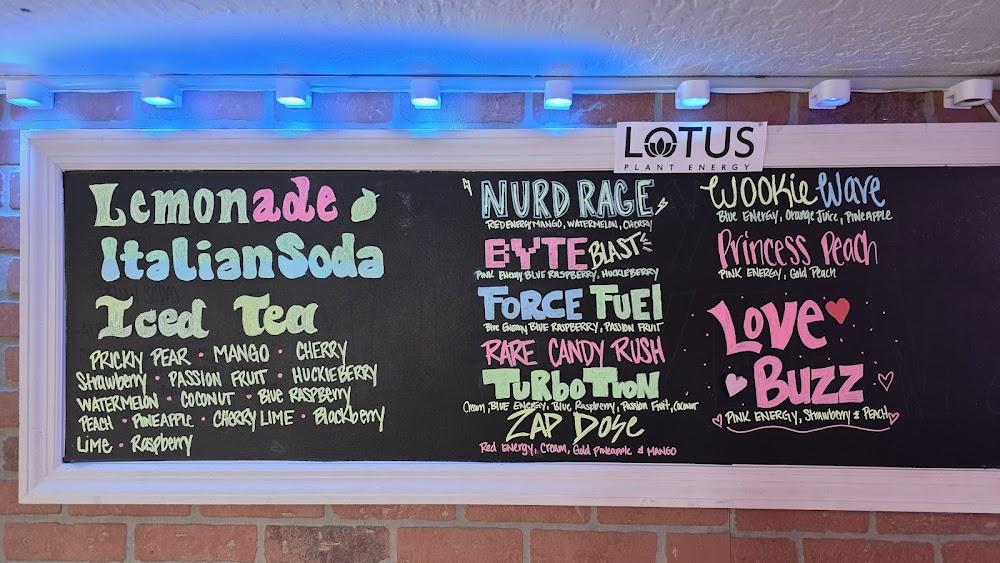 LOTUS
PLANT ENERGY
Lemonade
Italian Soda
Iced Tea
PRICKLY PEAR • MANGO • CHERRY
Strawberry • PASSION FRUIT • HUCKLEBERRY
WATERMELON • COCONUT • BLUE RASPBERRY
PEACH • PINEAPPLE • CHERRY LIME • Blackberry
Lime • Raspberry
NURD RAGE
RED ENERGY MANGO, WATERMELON, CHERRY
BYTE BLAST
PINK ENERGY BLUE RASPBERRY, HUCKLEBERRY
FORCE FUEL
BLUE ENERGY BLUE RASPBERRY, PASSION FRUIT
RARE CANDY RUSH
TURBO TRON
Cream, BLUE ENERGY, Blue Raspberry, Passion Fruit, Coconut
ZAP DOSE
Red Energy, Cream, Gold Pineapple & MANGO
WOOKIE WAVE
BLUE ENERGY, Orange Juice, PINEAPPLE
Princess Peach
PINK ENERGY, Gold Peach
LOVE
BUZZ
PINK ENERGY, Strawberry & PEACH